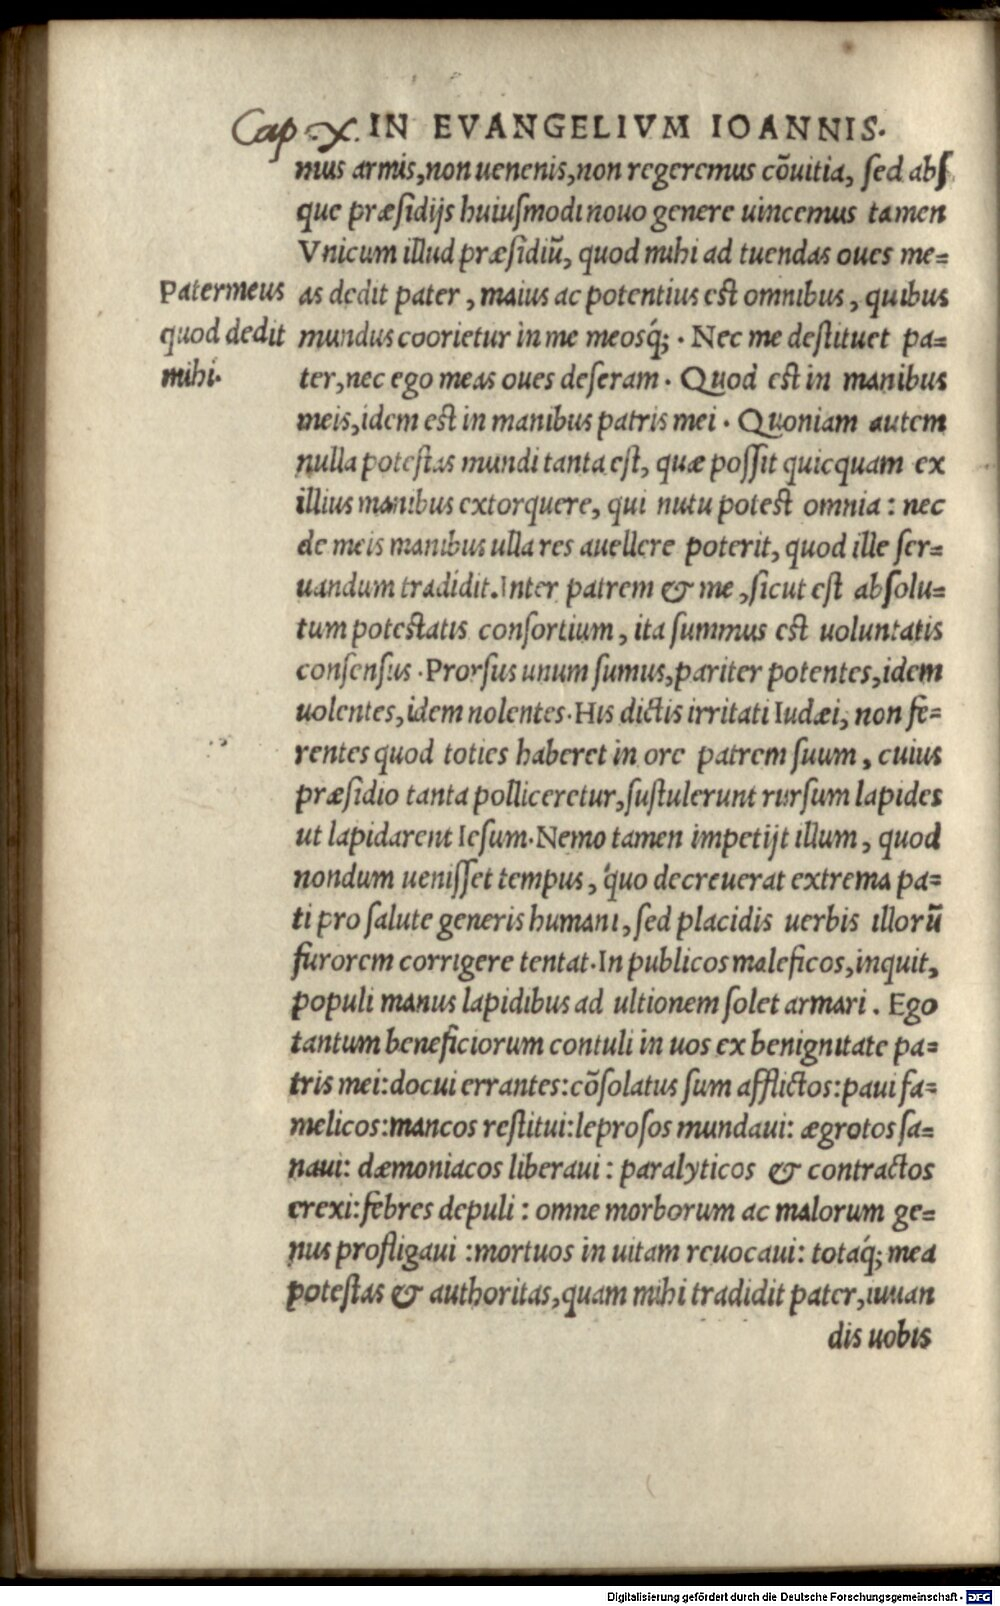 Cap. X. IN EVANGELIVM IOANNIS.
mus armis, non uenenis, non regeremus cõuitia, ſed abſ
que præſidijs huiuſmodi nouo genere uincemus tamen
Vnicum illud præſidiũ, quod mihi ad tuendas oues me=
Pater meus
quod dedit
mihi.
as dedit pater, maius ac potentius eſt omnibus, quibus
mundus coorietur in me meosq́;. Nec me deſtituet pa=
ter, nec ego meas oues deſeram. Quod eſt in manibus
meis, idem eſt in manibus patris mei. Quoniam autem
nulla poteſtas mundi tanta eſt, quæ poſſit quicquam ex
illius manibus extorquere, qui nutu poteſt omnia: nec
de meis manibus ulla res auellere poterit, quod ille ſer=
uandum tradidit. Inter patrem & me, ſicut eſt abſolu=
tum poteſtatis conſortium, ita ſummus eſt uoluntatis
conſenſus. Prorſus unum ſumus, pariter potentes, idem
uolentes, idem nolentes. His dictis irritati Iudæi, non fe=
rentes quod toties haberet in ore patrem ſuum, cuius
præſidio tanta polliceretur, ſuſtulerunt rurſum lapides
ut lapidarent Ieſum. Nemo tamen impetijt illum, quod
nondum ueniſſet tempus, quo decreuerat extrema pa=
ti pro ſalute generis humani, ſed placidis uerbis illorũ
furorem corrigere tentat. In publicos maleficos, inquit,
populi manus lapidibus ad ultionem ſolet armari. Ego
tantum beneficiorum contuli in uos ex benignitate pa=
tris mei: docui errantes: cõſolatus ſum afflictos: paui fa=
melicos: mancos reſtitui: leproſos mundaui: ægrotos ſa=
naui: dæmoniacos liberaui: paralyticos & contractos
erexi: febres depuli: omne morborum ac malorum ge=
nus profligaui: mortuos in uitam reuocaui: totaq́; mea
poteſtas & authoritas, quam mihi tradidit pater, iuuan
dis uobis
Digitalisierung gefördert durch die Deutsche Forschungsgemeinschaft - DFG